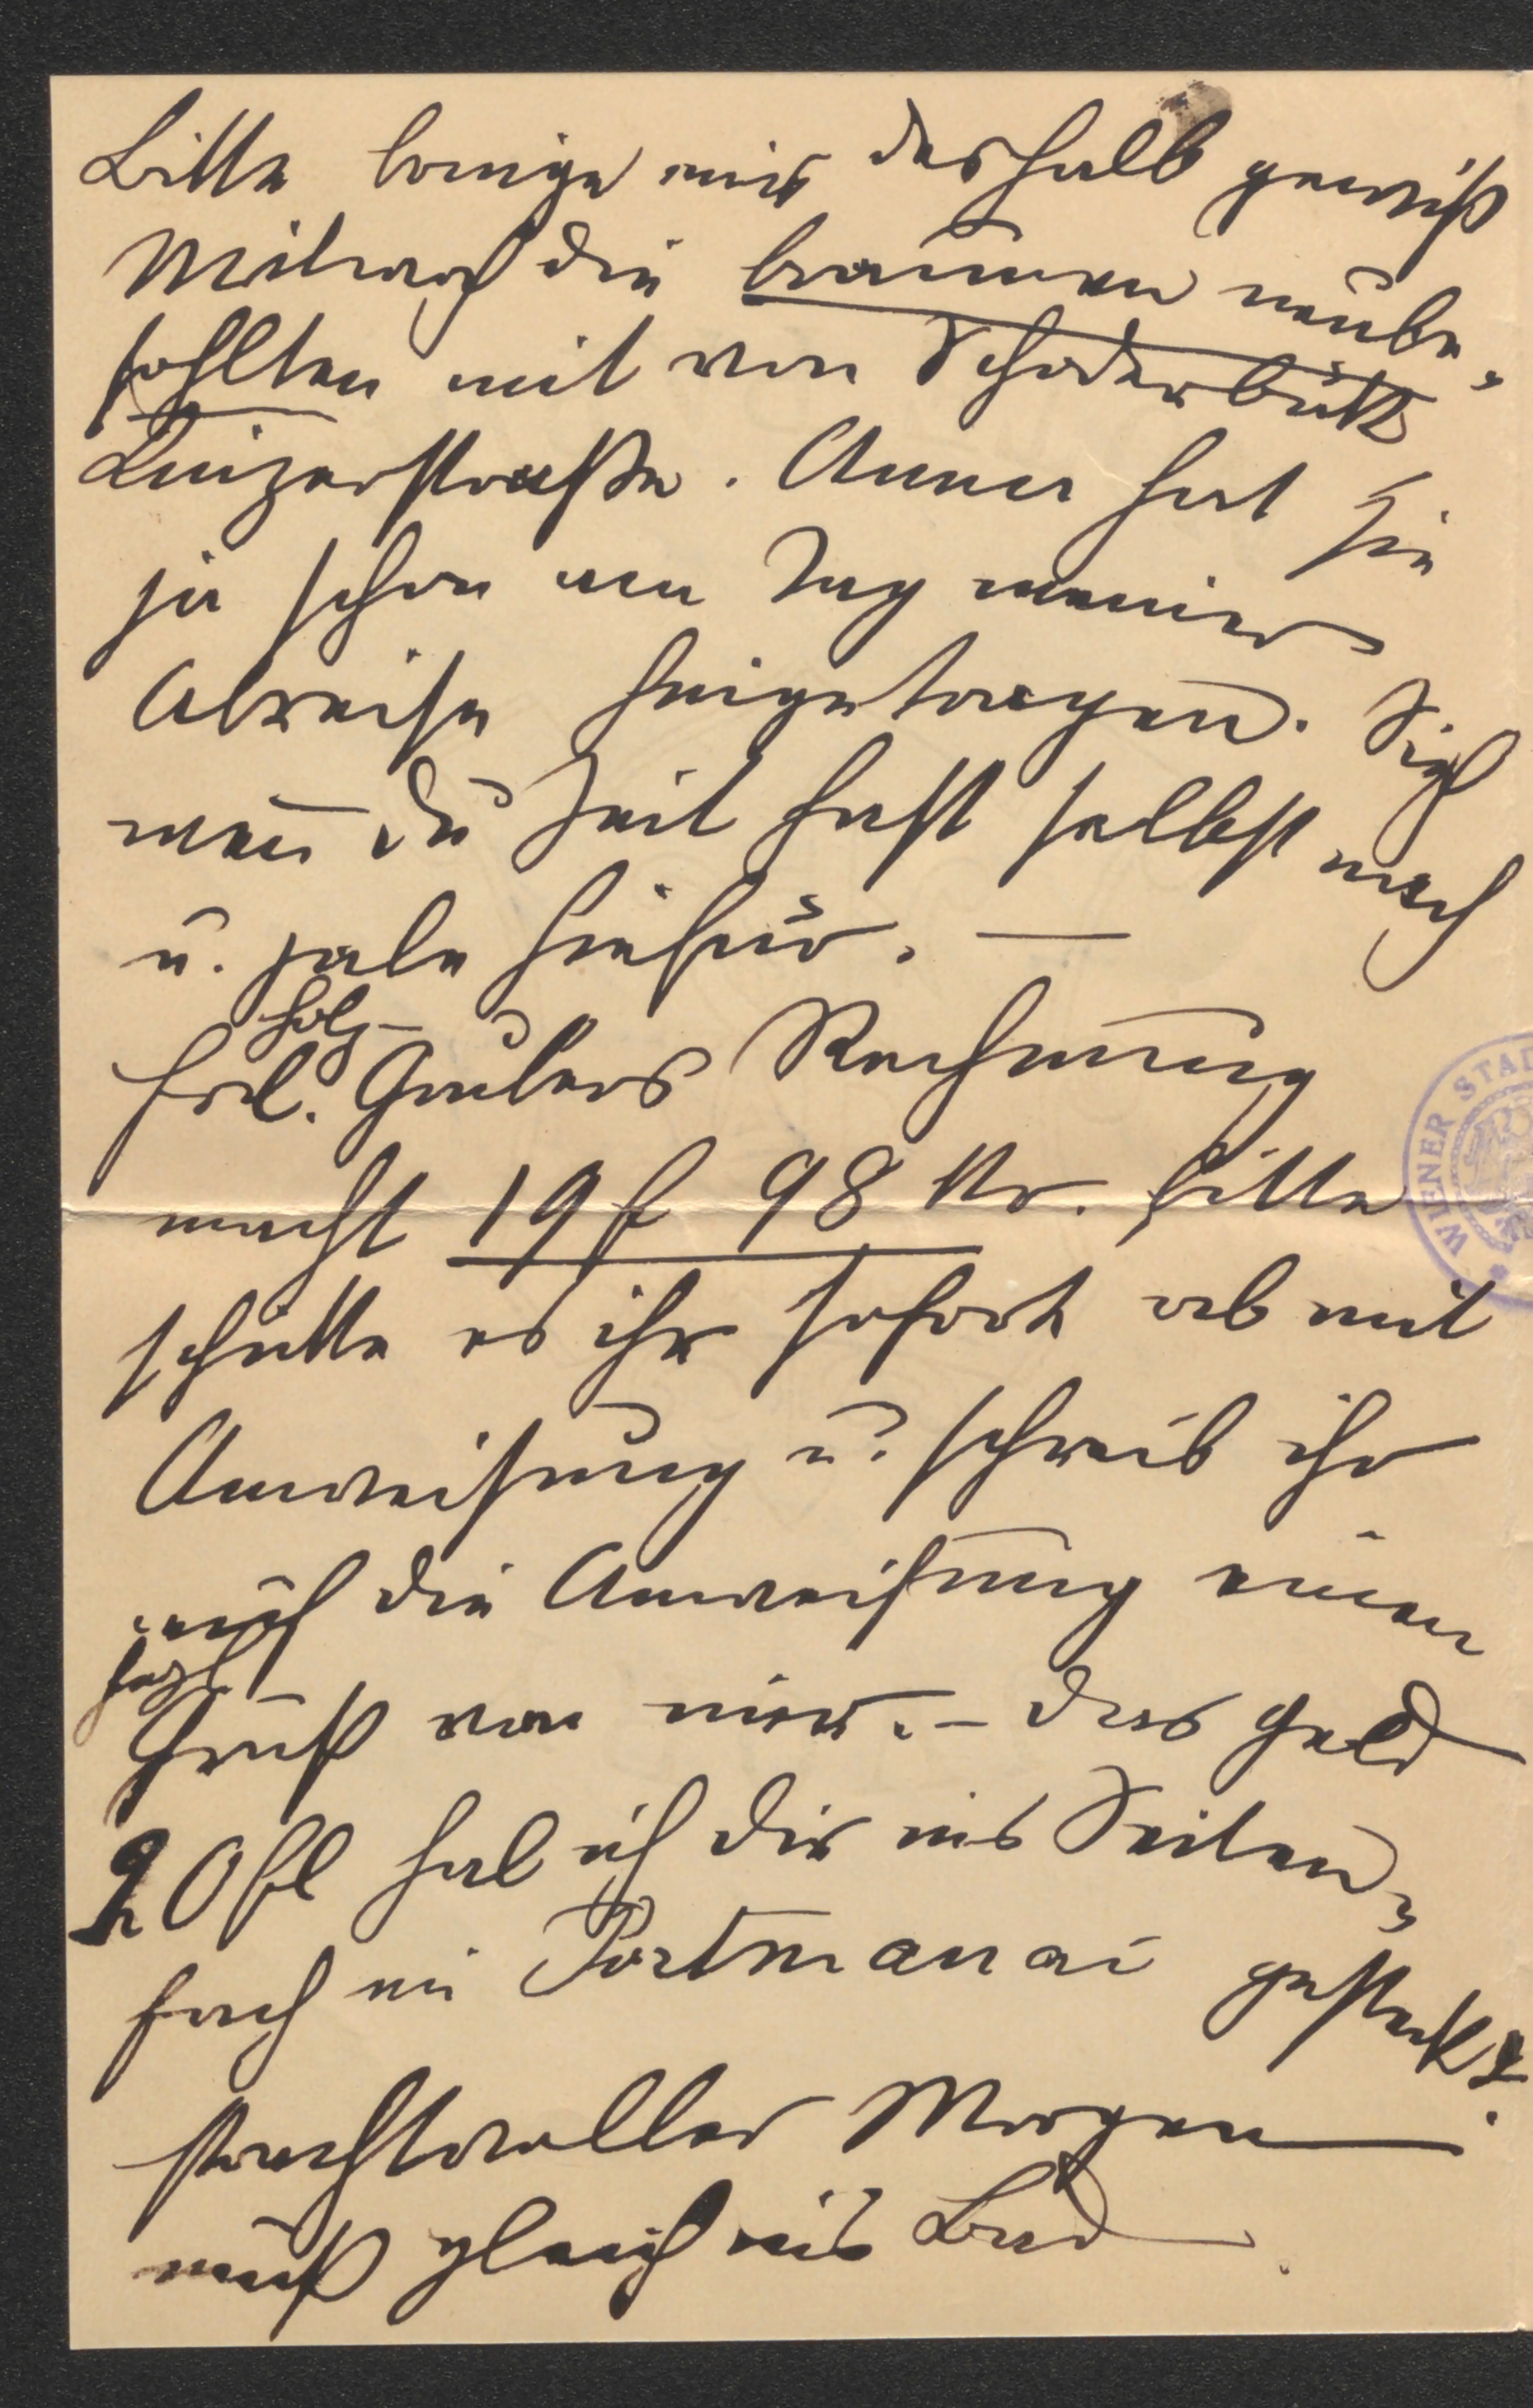 Bitte bringe mir deshalb gewiß
Mitwoch die braunen neube-
sohlten mit von Schoderböck
Linzerstraße. Anna hat sie
ja schon am Tag meiner
Abreise hingetragen. Sieh
wen̅ du Zeit hast selbst nach
u. zale hiefür. —
Holz-
Frl. Grubers Rechnung
macht 19 f 98 Kr. bitte
schike es ihr sofort ab mit
Anweisung u. schreib ihr
auf die Anweisung einen
herzl
Gruß von mir. – Das Geld
20 fl hab ich dir ins Seiten-
fach im Portmanai gestekt.
Prachtvoller Morgen
muß gleich ins Bad
WIENER STAD